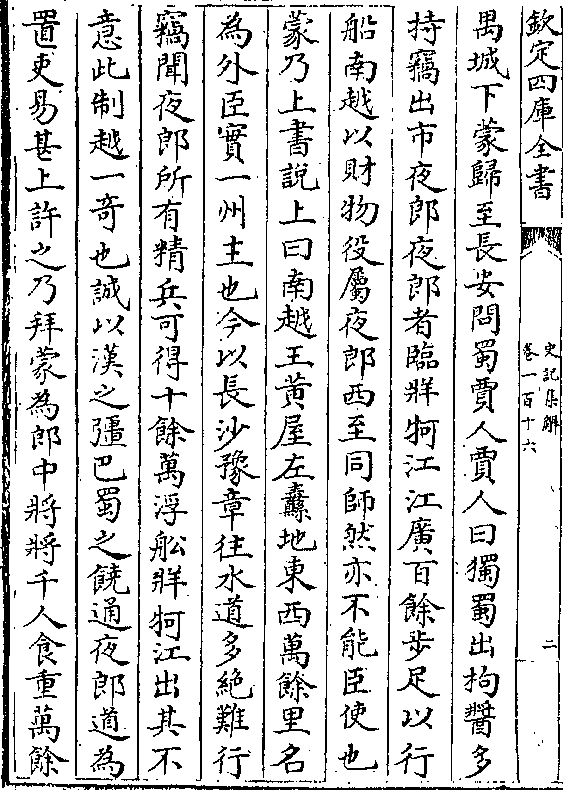 欽定四庫全書
史記集解
卷一百十六
二
禺城下蒙歸至長安問蜀賈人賈人曰獨蜀出枸醬多
持竊出市夜郎夜郎者臨牂牁江江廣百餘步足以行
船南越以財物役屬夜郎西至同師然亦不能臣使也
蒙乃上書說上曰南越王黃屋左纛地東西萬餘里名
為外臣實一州主也今以長沙豫章往水道多絶難行
竊聞夜郎所有精兵可得十餘萬浮舩牂牁江出其不
意此制越一奇也誠以漢之彊巴蜀之饒通夜郎道為
置吏易甚上許之乃拜蒙為郎中將將千人食重萬餘